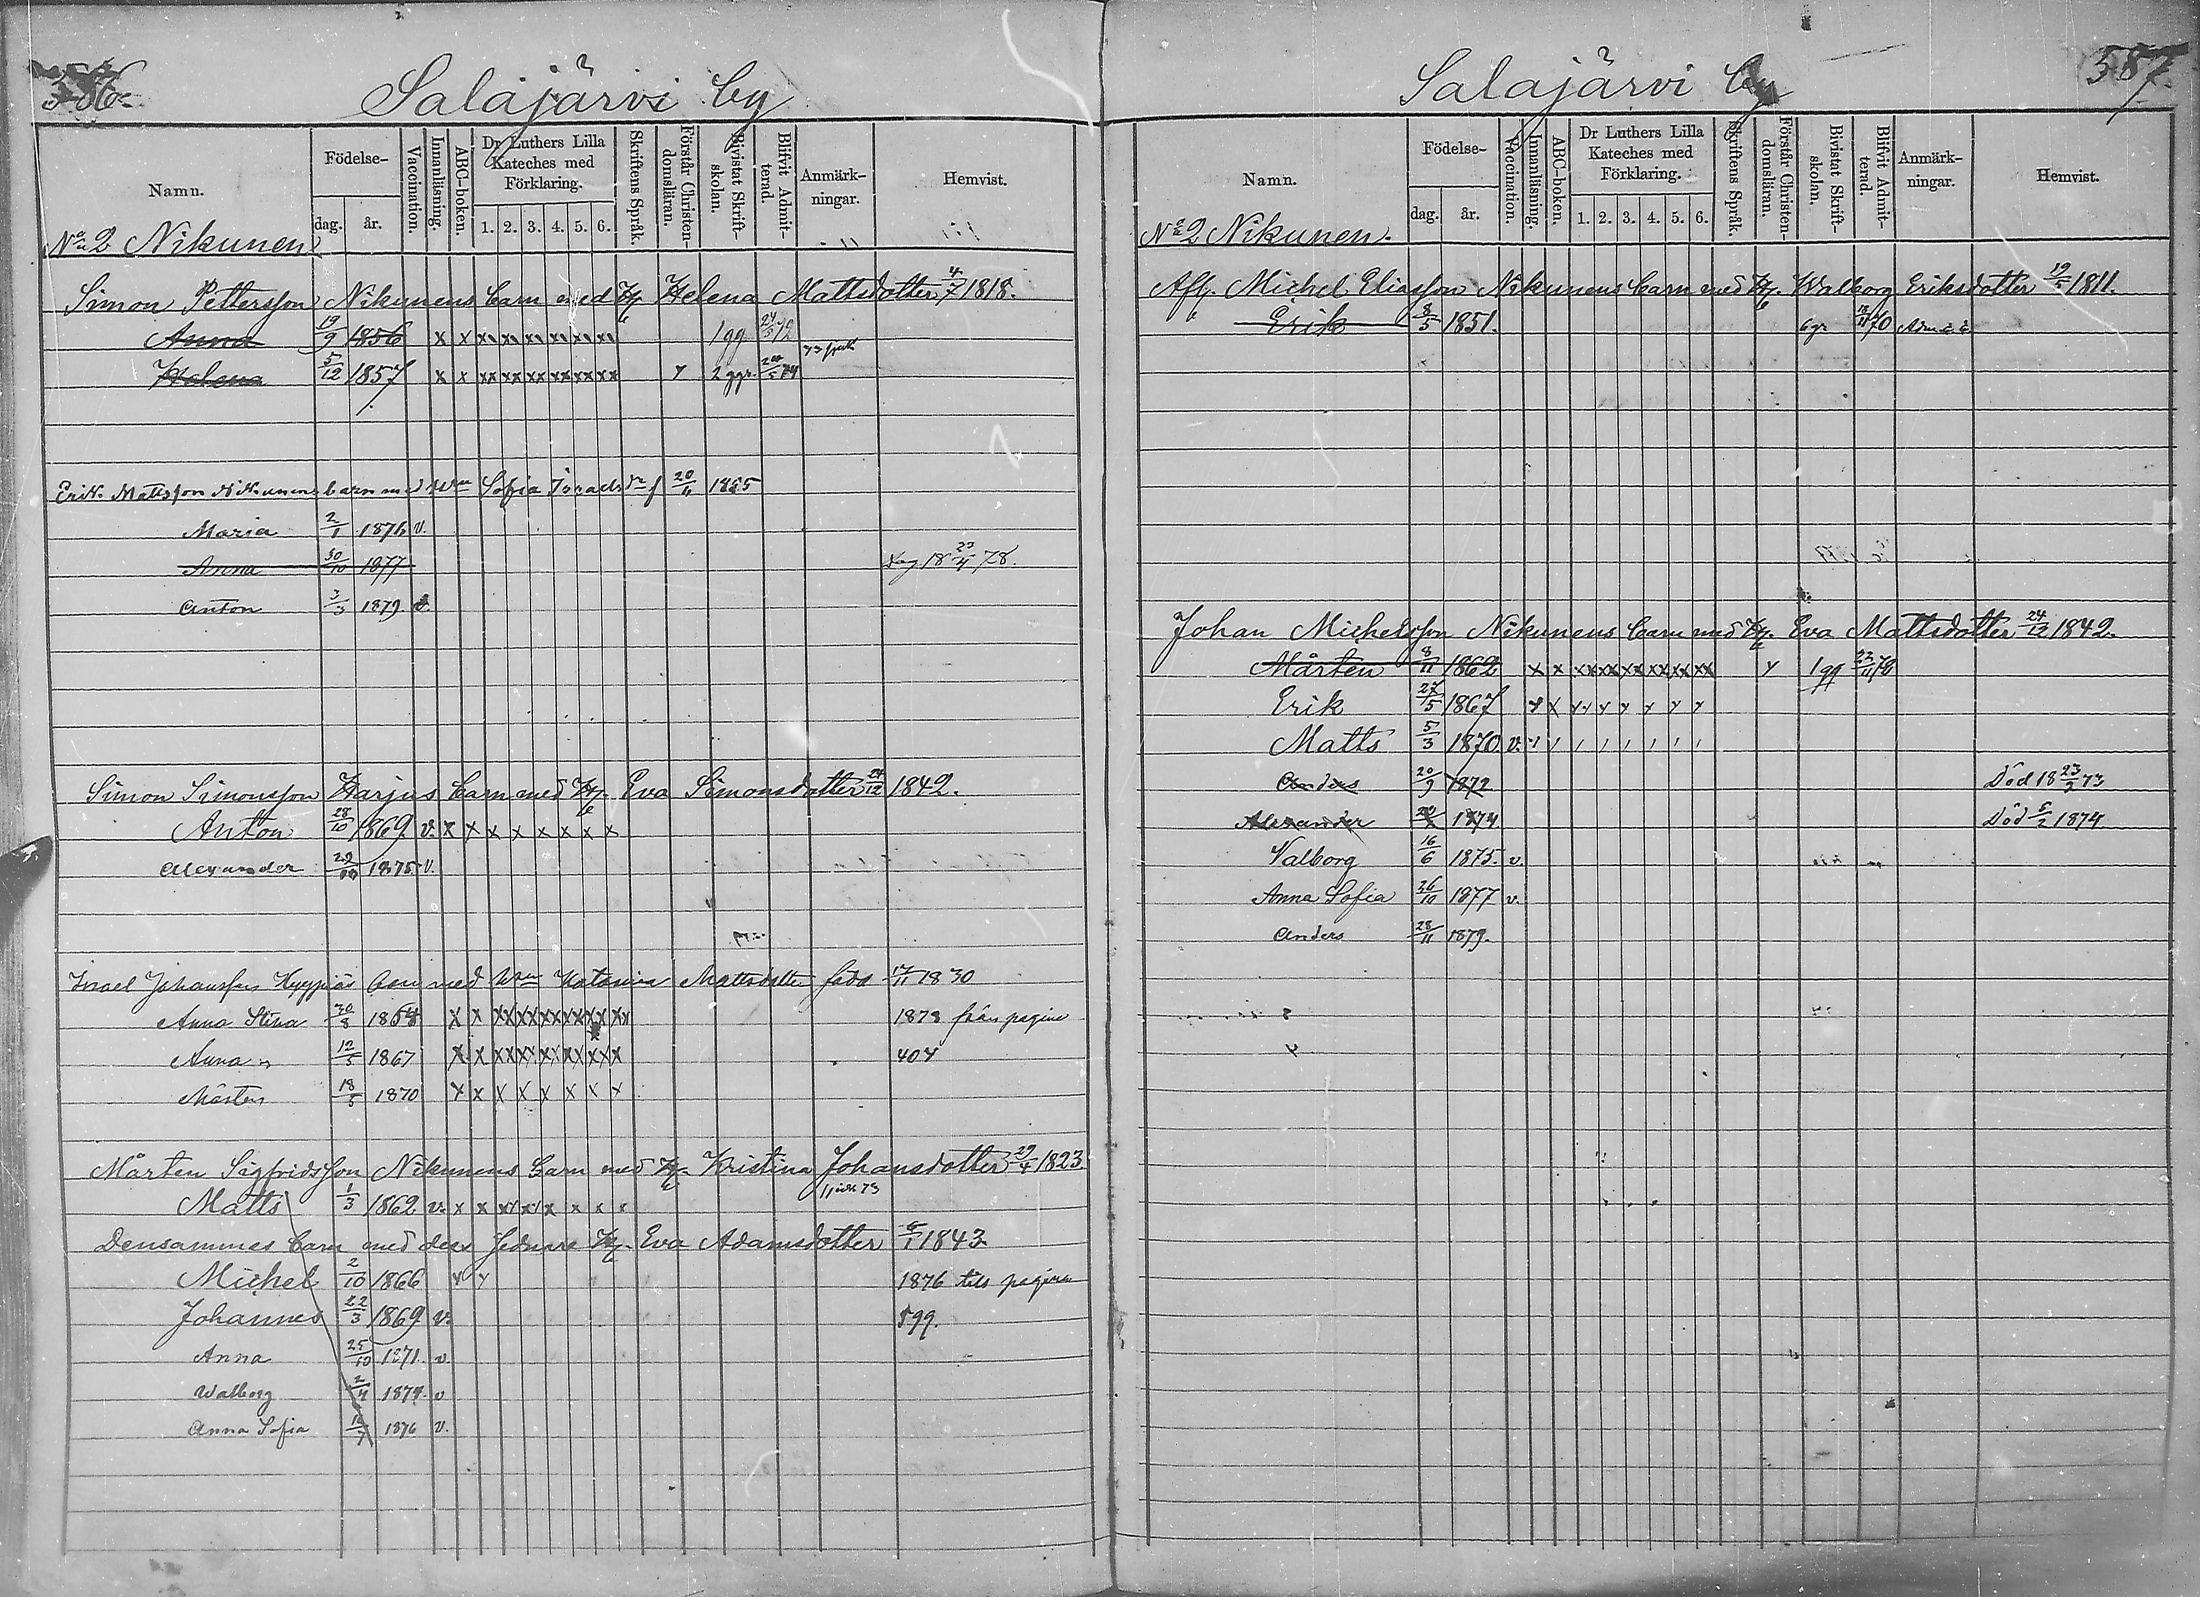 586.
Salajärvi by
Namn.
Födelse-
dag.
år.
Vaccination.
Innanläsning.
ABC-boken.
Dr Luthers Lilla
Kateches med
Förklaring.
1. 2. 3. 4. 5. 6.
Skriftens Språk.
Förstår Christen-
domsläran.
Bivistat Skrift-
skolan.
Blifvit Admit-
terad.
Anmärk-
ningar.
Hemvist.
No 2 Nikunen
Simon Pettersson Nikunens barn med Hu. Helena Mattsdotter 4/7 1818.
Anna 19/9 1856 x x xx xx xx xx xx xx 1 gg 24/3 72
Helena 5/12 1857 x x xx xx xx xx xx xx x 2 ggr.
Erik Mattsson Nikunens barn med Sofia f 20/11 1855
Maria 2/1 1876 v.
Anna 30/10 1877 Dog 18 23/4 78.
Anton 3/3 1879. v.
Simon Simonsson Harjus barn med Hu. Eva Simonsdotter 24/12 1842.
Anton 28/10 1869 v. x x x x x x x x
Alexander 1875 v.
Israel Johansson barn med Katarina Mattsdotter född 1830
Anna Stina 30/8 x x xx xx xx xx xx xx 1878 från pagina
Anna 12/5 1867 x x xx xx xx xx xx xx 404
Mårten 18/5 1870 x x x x x x x x
Mårten Sigfridsson Nikunens barn med Hu. Kristina Johansdotter 29/4 1823.
Matts 1/3 1862 v. x x xx xx x x x x
Densammes barn med dess sednare Hu. Eva Adamsdotter 1843
Michel 2/10 1866 x x 1876 till pagina
Johannes 22/3 1869 v. 599.
Anna 25/10 1871. v
Walborg 2/4 1874. v
Anna Sofia 1876 v.
587.
Salajärvi by
Namn.
Födelse-
dag.
år.
Vaccination.
Innanläsning.
ABC-boken.
Dr Luthers Lilla
Kateches med
Förklaring.
1. 2. 3. 4. 5. 6.
Skriftens Språk.
Förstår Christen-
domsläran.
Bivistat Skrift-
skolan.
Blifvit Admit-
terad.
Anmärk-
ningar.
Hemvist.
No 2 Nikunen.
Afl. Michel Eliasson Nikunens barn med Hu. Walborg Eriksdotter 1811.
Erik 8/5 1851. 70
Johan Michelsson Nikunens barn med Hu. Eva Mattsdotter 24/12 1842.
Mårten 8/11 1862 x x xx xx xx xx xx xx x 1 gg 78
Erik 27/5 1867 x x
Matts 5/3 1870 v.
Anders 20/9 1872 Död 18 23/2 73
Alexander 1874 Död 5/2 1874
Valborg 16/6 1875. v.
Anna Sofia 26/10 1877 v.
Anders 28/11 1879.